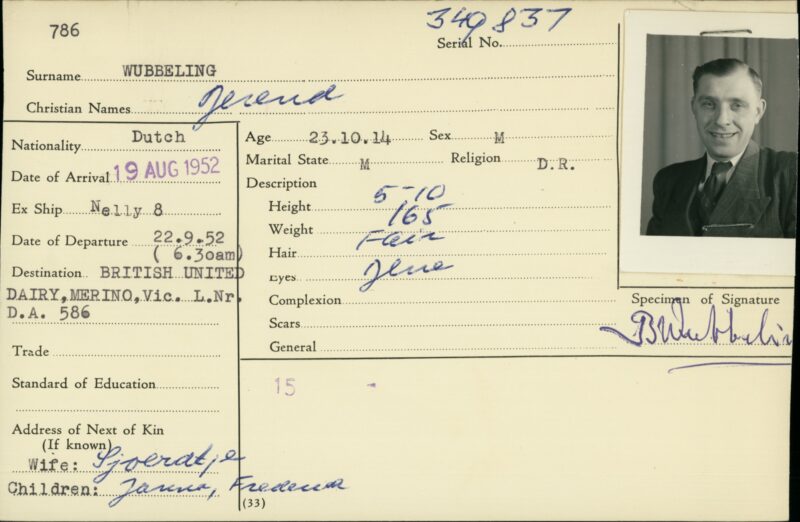 786
349837
Serial No.
Surname WUBBELING
Christian Names Berend
Nationality Dutch
Date of Arrival 19 AUG 1952
Ex Ship Nelly 8
Date of Departure 22.9.52
( 6.30am)
Destination BRITISH UNITED
DAIRY,MERINO,Vic. L.Nr.
D.A. 586
Trade
Standard of Education
Address of Next of Kin
(If known)
Wife: Sjoerdtje
Children: Janna,
(33)
Age 23.10.14 Sex M
Marital State M Religion D.R.
Description
Height 5-10
Weight 165
Hair Fair
Eyes
Complexion
Scars
General
15 -
Specimen of Signature
BWubbelin